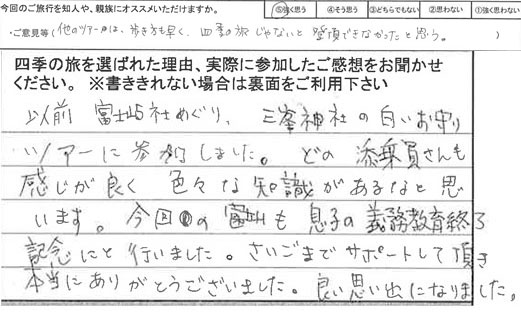 今回のご旅行を知人や、親族にオススメいただけますか。 ⑤強く思う ④そう思う ③どちらでもない ②思わない ①強く思わない
・ご意見等(他のツアーは、歩き方も早く、四季の旅じゃないと登頂できなかったと思う。)
四季の旅を選ばれた理由、実際に参加したご感想をお聞かせ
ください。 ※書ききれない場合は裏面をご利用下さい
以前 富士山5社めぐり、三峯神社の白いお守り
ツアーに参加しました。どの添乗員さんも
感じが良く 色々な知識があるなと思
います。今回の富士山も息子の義務教育終了
記念にと行いました。さいごまでサポートして頂き
本当にありがとうございました。良い思い出になりました。